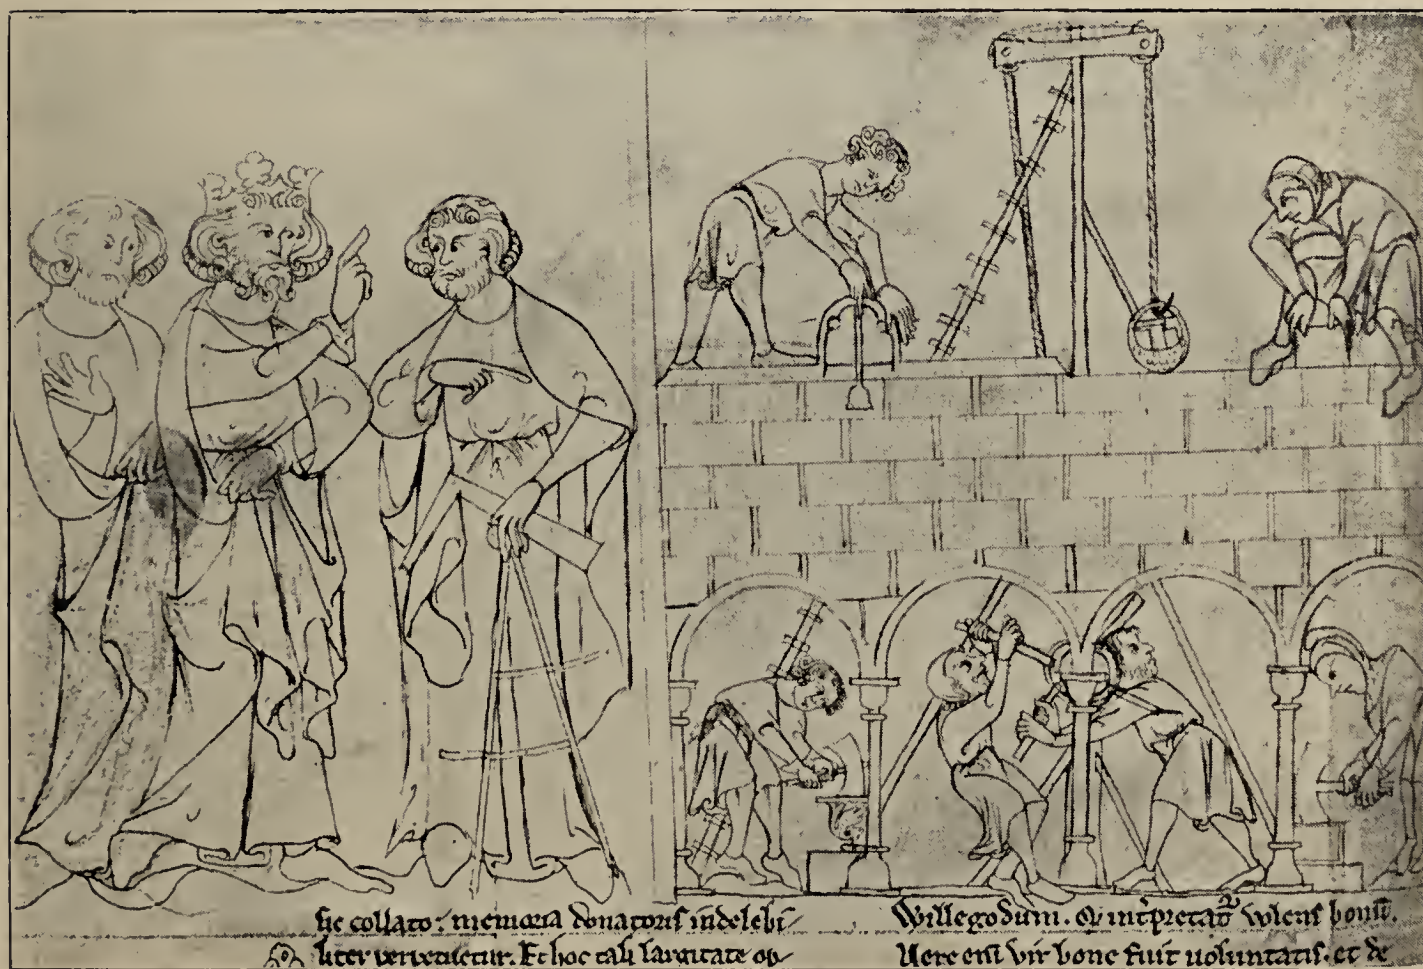 sic collato: memoria donatoris indelebi-
liter perpetuetur. Et hoc tali largitate op-
Willegodum. qđ int͛pretat᷑ volens bonū.
Vere eni vir bone fuit uoluntatis. et de